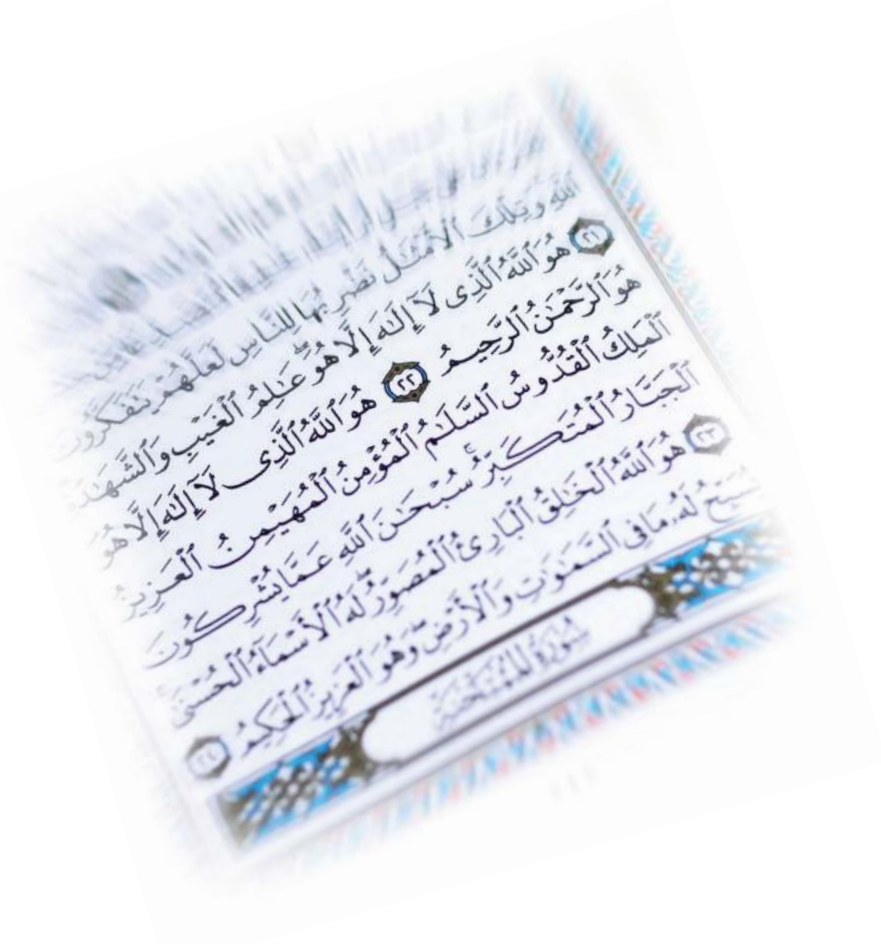 ٱللَّهِ وَتِلْكَ ٱلْأَمْثَٰلُ نَضْرِبُهَا لِلنَّاسِ لَعَلَّهُمْ يَتَفَكَّرُونَ
٢١ هُوَ ٱللَّهُ ٱلَّذِى لَآ إِلَٰهَ إِلَّا هُوَ ۖ عَٰلِمُ ٱلْغَيْبِ وَٱلشَّهَٰدَةِ
هُوَ ٱلرَّحْمَٰنُ ٱلرَّحِيمُ ٢٢ هُوَ ٱللَّهُ ٱلَّذِى لَآ إِلَٰهَ إِلَّا هُوَ
ٱلْمَلِكُ ٱلْقُدُّوسُ ٱلسَّلَٰمُ ٱلْمُؤْمِنُ ٱلْمُهَيْمِنُ ٱلْعَزِيزُ
ٱلْجَبَّارُ ٱلْمُتَكَبِّرُ ۚ سُبْحَٰنَ ٱللَّهِ عَمَّا يُشْرِكُونَ
٢٣ هُوَ ٱللَّهُ ٱلْخَٰلِقُ ٱلْبَارِئُ ٱلْمُصَوِّرُ ۖ لَهُ ٱلْأَسْمَآءُ ٱلْحُسْنَىٰ
يُسَبِّحُ لَهُۥ مَا فِى ٱلسَّمَٰوَٰتِ وَٱلْأَرْضِ ۖ وَهُوَ ٱلْعَزِيزُ ٱلْحَكِيمُ ٢٤
سُورَةُ الْمُمْتَحَنَةِ